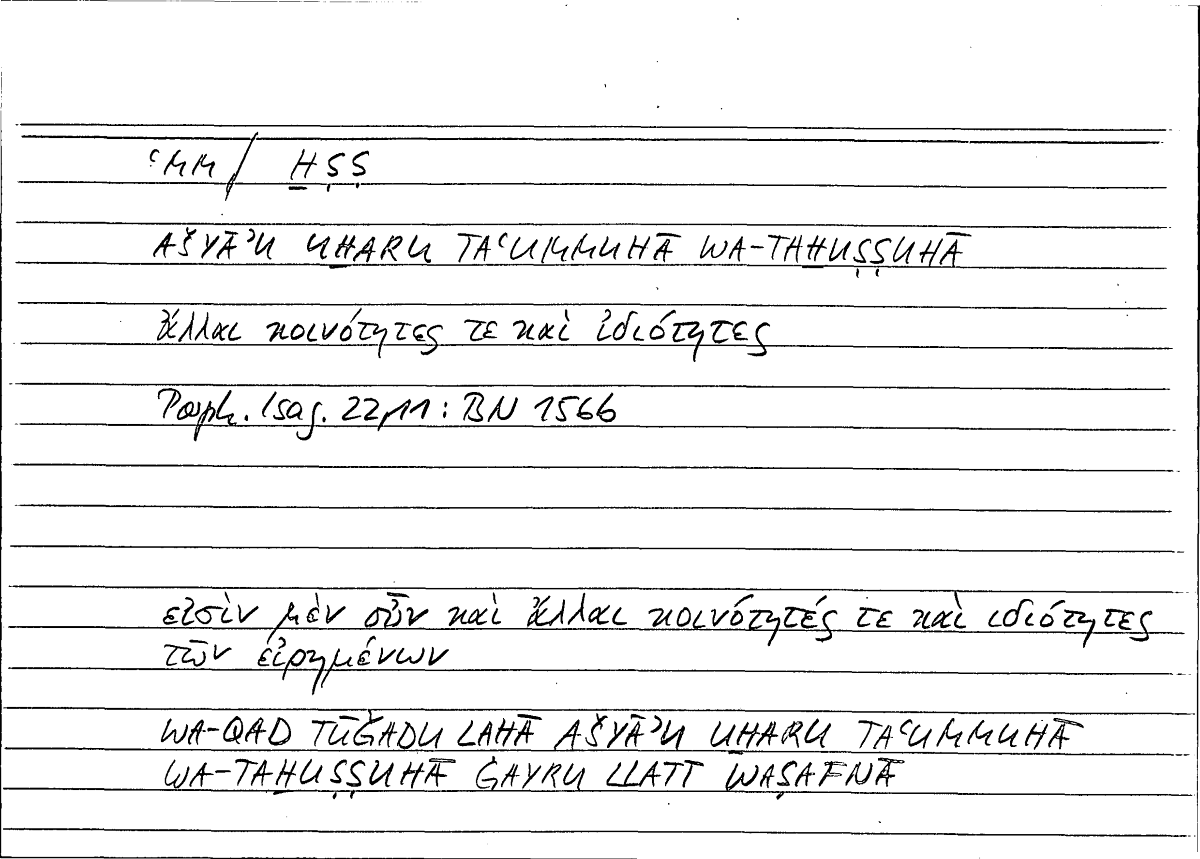 ʿMM / H̱ṢṢ
AŠYĀʾU UH̱ARU TAʿUMMUHĀ WA-TAH̱UṢṢUHĀ
ἄλλαι κοινότητες τε καὶ ἰδιότητες
Porph. Isag. 22,11 : BN 1566
εἰσὶν μὲν οὖν καὶ ἄλλαι κοινότητές τε καὶ ἰδιότητες
τῶν εἰρημένων
WA-QAD TŪǦADU LAHĀ AŠYĀʾU UH̱ARU TAʿUMMUHĀ
WA-TAH̱UṢṢUHĀ ĠAYRU LLATĪ WAṢAFNĀ